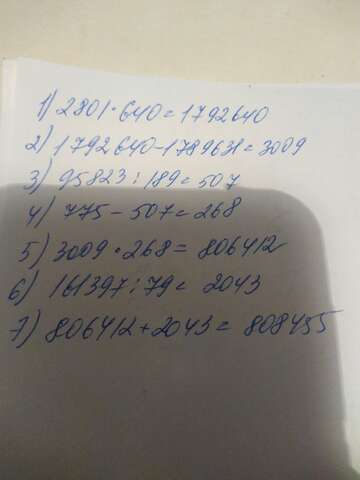 1) 2801 · 640 = 1792640
2) 1792640 - 1789631 = 3009
3) 95823 : 189 = 507
4) 775 - 507 = 268
5) 3009 · 268 = 806412
6) 161397 : 79 = 2043
7) 806412 + 2043 = 808455